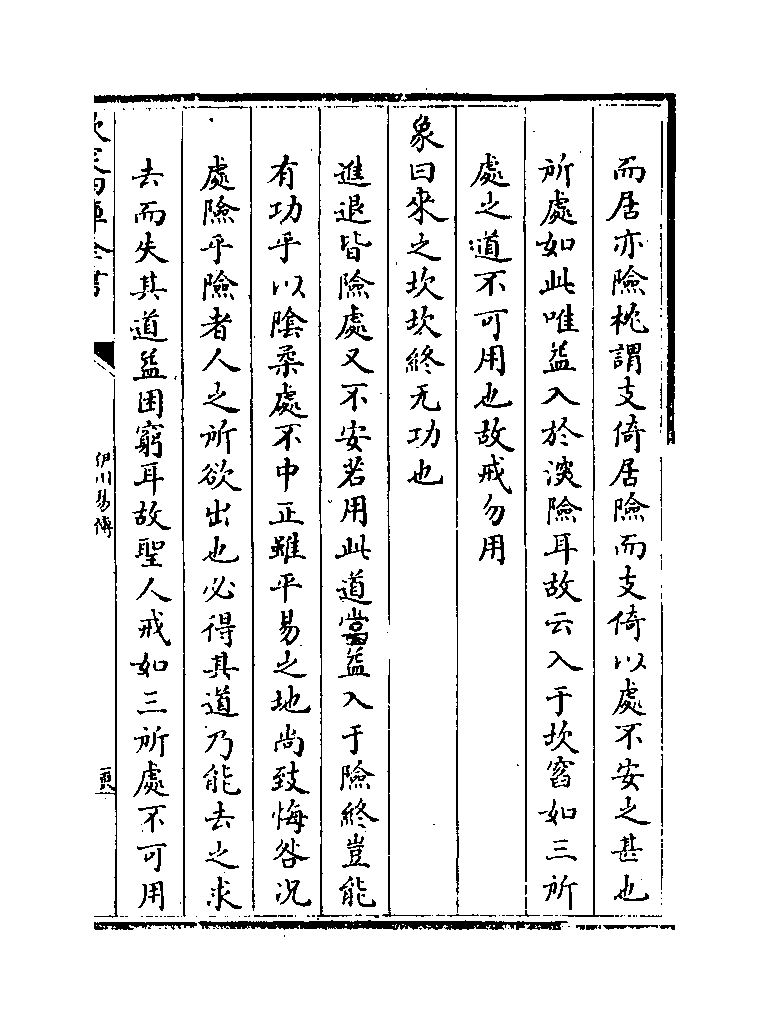 而居亦險枕謂支倚居險而支倚以處不安之甚也
所處如此唯益入於深險耳故云入于坎窞如三所
處之道不可用也故戒勿用
象曰來之坎坎終无功也
進退皆險處又不安若用此道當益入于險終豈能
有功乎以陰柔處不中正雖平易之地尚致悔咎况
處險乎險者人之所欲出也必得其道乃能去之求
去而失其道益困窮耳故聖人戒如三所處不可用
欽定四庫全書
伊川易傳